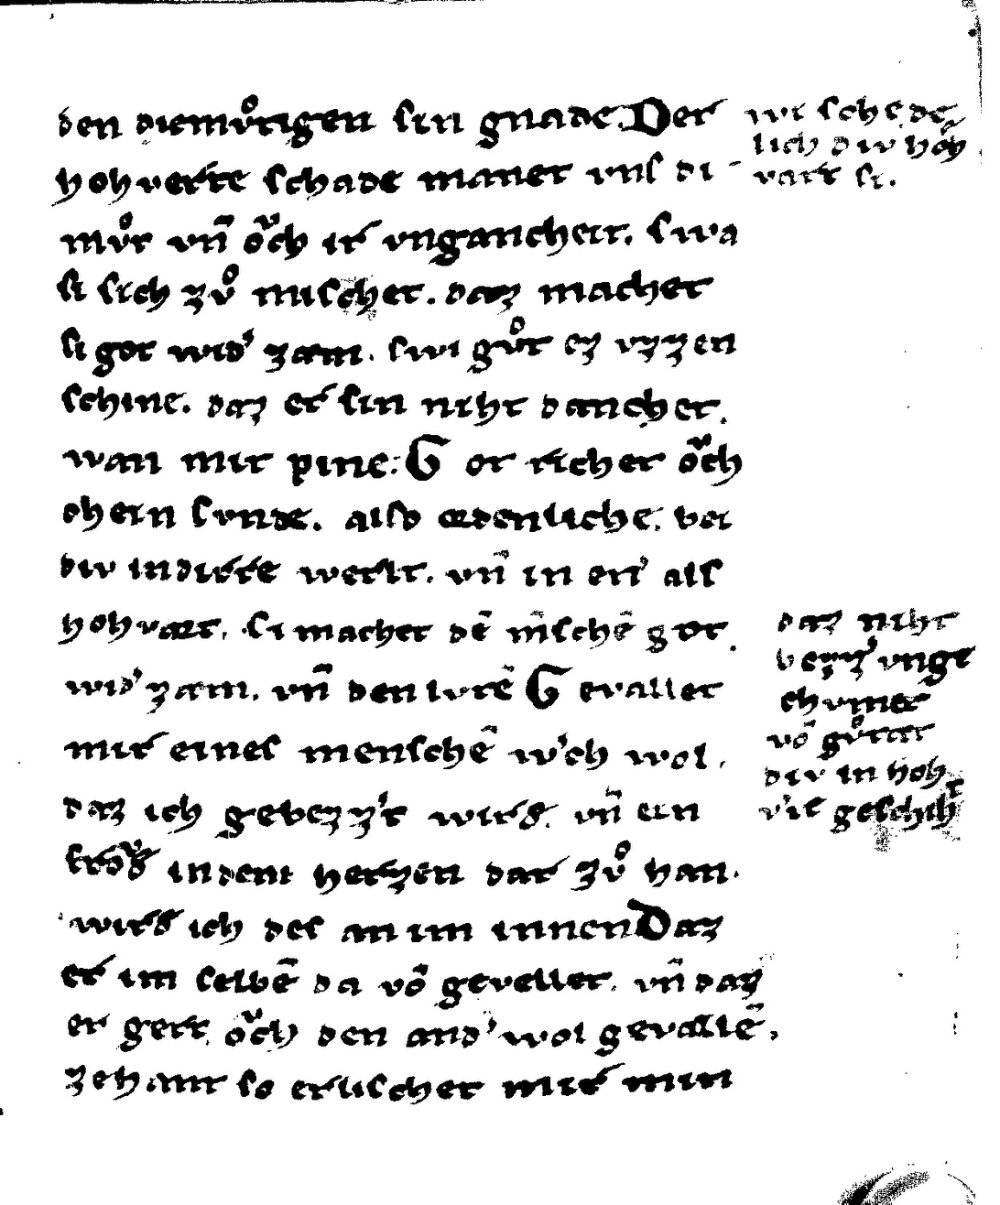 den diemv̊tigen sin gnade. Der
hohverte schade machet vns di
mv̊t vn̄ oͮch ir vngancheit. swa
si sich zv̊ mischet. daz machet
si got wid' zæm. swi gv̊t ez vzzen
schine. daz er sin niht danchet.
wan mit pine. Got richet oͮch
dhein sunde. also ædenliche. bei
div in dirre werlt. vn̄ in en' als
hohvart. si machet dē m̄schē got
wid' zæm. vn̄ den lvtē Gevallet
mir eines menschē w'ch wol.
daz ich gebezz't wirde. vn̄ ein
in dem hertzen dar zv̊ han.
wird ich des an im innen Daz
er im selbē da vō gevellet. vn̄ daz
er gert oͮch den and' wol gevallē.
zehant so erlischet mir min
wi schede
lich div hoh
vart si.
daz niht
bezz'unge
chvmet
vō gv̊tæt
div in hoh
v't geschiht